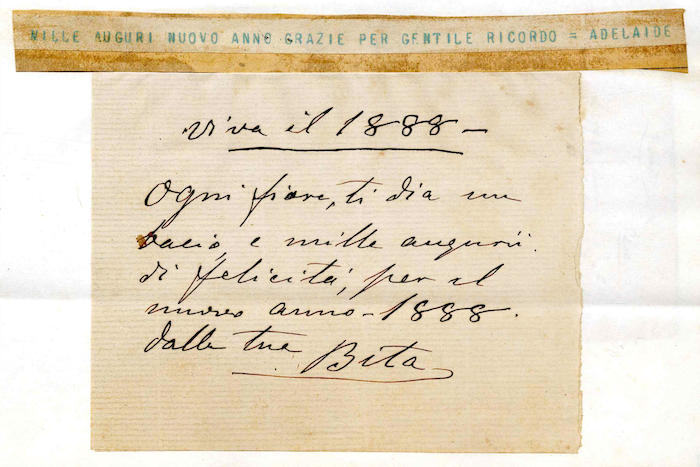 MILLE AUGURI NUOVO ANNO GRAZIE PER GENTILE RICORDO = ADELAIDE
Viva il 1888 —
Ogni fiore, ti dia un
bacio, e mille augurii
di felicità, per il
nuovo anno - 1888.
dalla tua Bita